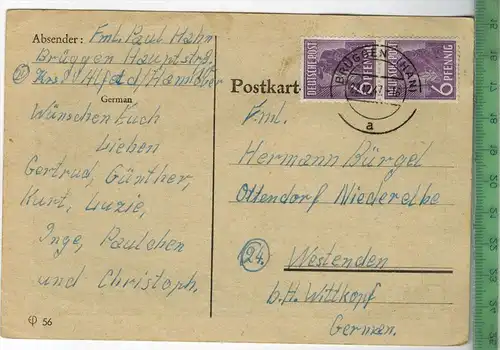 Absender: Fml. Paul Hahn
Brüggen Hauptstr.
Krs. Alfeld/Hannover
German
Wünschen Euch
Lieben
Gertrud, Günther,
Kurt, Luzie,
Inge, Paulchen
und Christoph.
56
Postkart
DEUTSCHE POST
6 PFENNIG
6 PFENNIG
BRÜGGEN (HAN)
a
Fml.
Hermann Bürgel
Ottendorf Niederelbe
24. Westenden
b. H. Wittkopf
German.